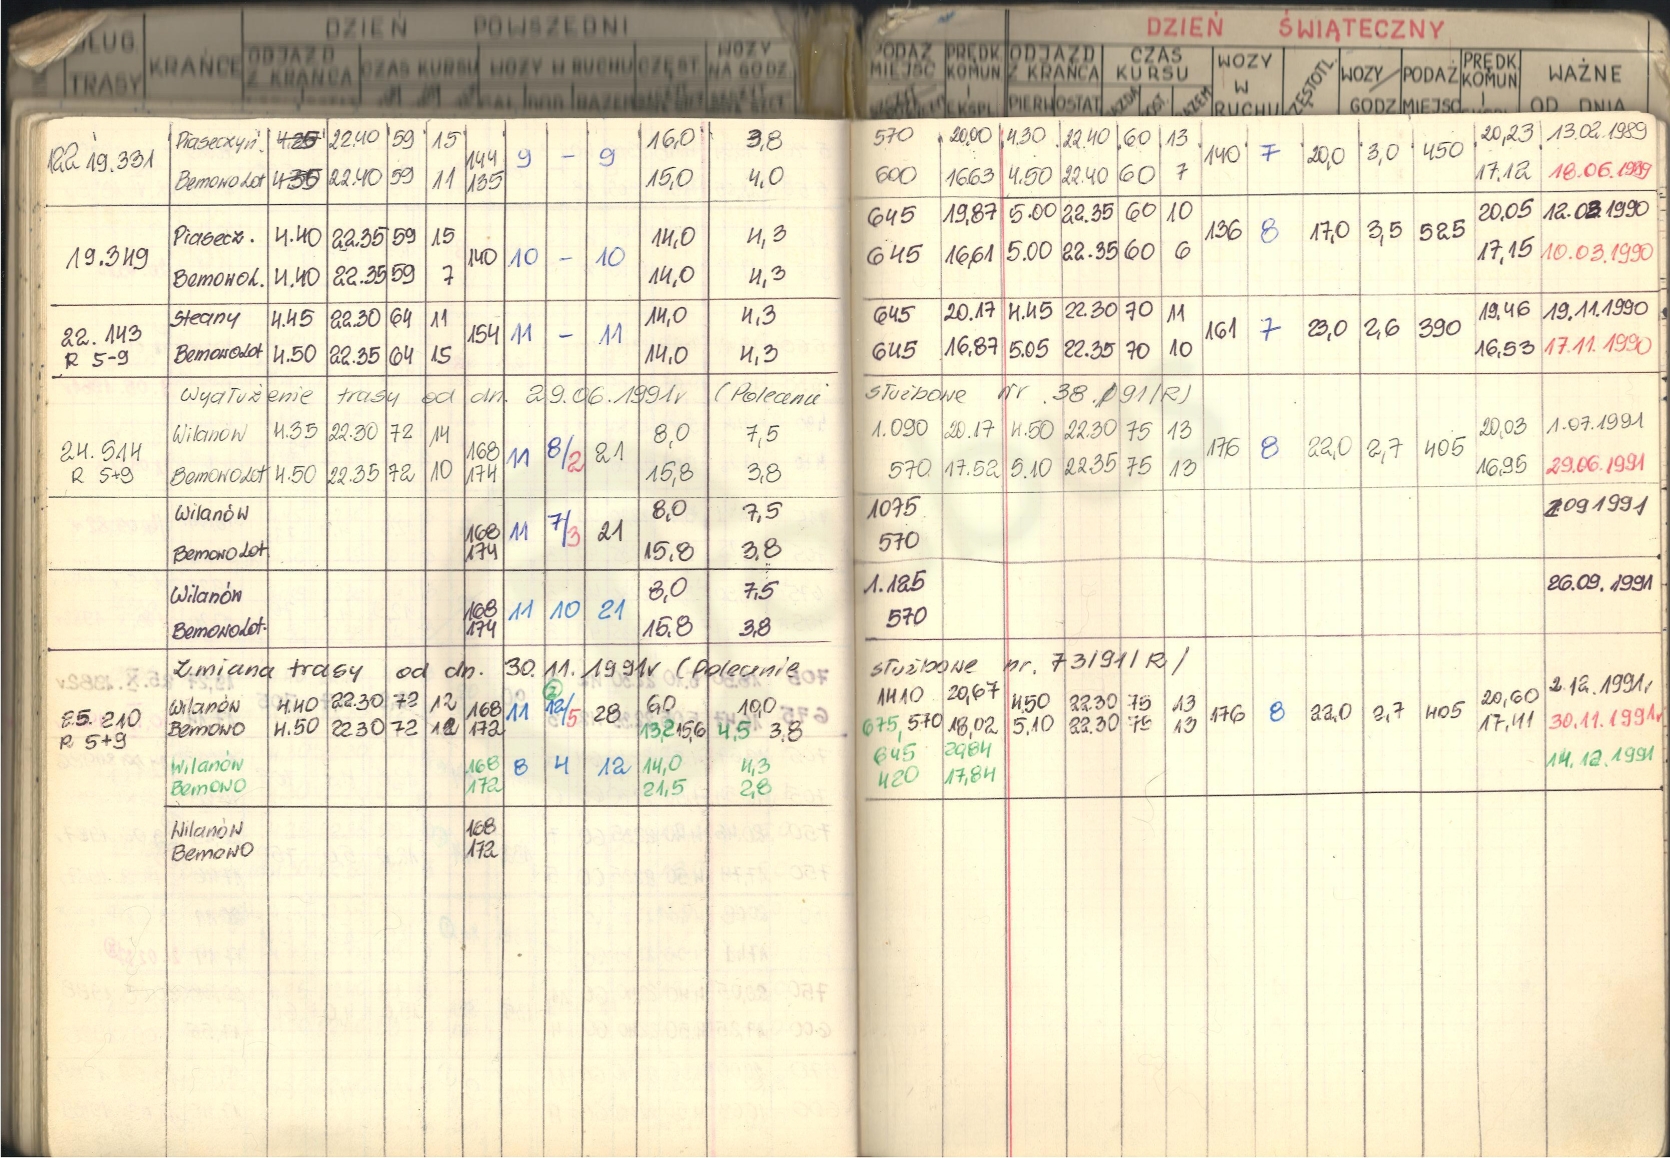 DZIEŃ POWSZEDNI DZIEŃ ŚWIĄTECZNY
DŁUG. TRASY KRAŃCE ODJAZD Z KRAŃCA CZAS KURSU WOZY W RUCHU CZĘST WOZY NA GODZ. PODAŻ MIEJSC PRĘDK KOMUN I EKSPL ODJAZD Z KRAŃCA CZAS KURSU WOZY W RUCHU CZĘSTOTL. WOZY GODZ PODAŻ MIEJSC PRĘDK. KOMUN I WAŻNE OD DNIA
PIERW OSTAT RAZEM
122 19.331 Piaseczyń. 4.25 22.40 59 15 144 9 – 9 16,0 3,8 570 20,00 4.30 22.40 60 13 140 7 20,0 3,0 450 20,23 13.02.1989
Bemowo Lot 4.35 22.40 59 11 135 15,0 4,0 600 16,63 4.50 22.40 60 7 17,12 18.06.1989
19.349 Piasecz. 4.40 22.35 59 15 140 10 – 10 14,0 4,3 645 19,87 5.00 22.35 60 10 136 8 17,0 3,5 525 20,05 12.03.1990
Bemowo L. 4.40 22.35 59 7 14,0 4,3 645 16,61 5.00 22.35 60 6 17,15 10.03.1990
22.143 Stegny 4.45 22.30 64 11 154 11 – 11 14,0 4,3 645 20.17 4.45 22.30 70 11 161 7 23,0 2,6 390 19,46 19.11.1990
R 5-9 Bemowo Lot 4.50 22.35 64 15 14,0 4,3 645 16,87 5.05 22.35 70 10 16,53 17.11.1990
Wydłużenie trasy od dn. 29.06.1991r (Polecenie służbowe nr 38/91/R)
24.514 Wilanów 4.35 22.30 72 14 168 11 8/2 21 8,0 7,5 1.090 20.17 4.50 22.30 75 13 176 8 22,0 2,7 405 20,03 1.07.1991
R 5+9 Bemowo Lot 4.50 22.35 72 10 174 15,8 3,8 570 17.52 5.10 22.35 75 13 16,95 29.06.1991
Wilanów 168 11 7/3 21 8,0 7,5 1075 2.09 1991
Bemowo Lot. 174 15,8 3,8 570
Wilanów 168 11 10 21 8,0 7,5 1.125 26.09.1991
Bemowo Lot. 174 15,8 3,8 570
Zmiana trasy od dn. 30.11.1991r (Polecenie służbowe nr. 73/91/R/
25.210 Wilanów 4.40 22.30 72 12 168 11 12/5 28 6,0 10,0 1410 20,67 4.50 22.30 75 13 176 8 22,0 2,7 405 20,60 2.12.1991r
R 5+9 Bemowo 4.50 22.30 72 12 172 13,2 15,6 4,5 3,8 675, 570 18,02 5.10 22.30 75 13 17,41 30.11.1991r
Wilanów 168 8 4 12 14,0 4,3 645 14.12.1991
Bemowo 172 21,5 2,8 420 17,84
Wilanów 168
Bemowo 172